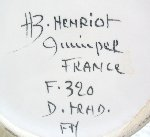 HB. HENRIOT
Quimper
FRANCE
F. 320
D. TRAD.